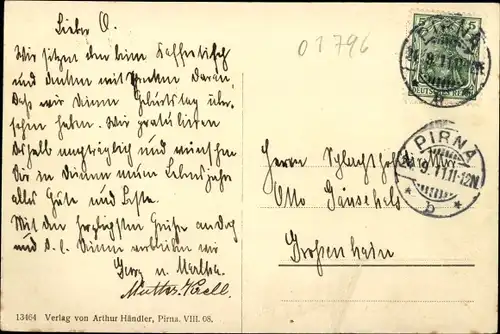 Lieber O.
Wir sitzen beim Kaffeetisch
und denken mit Daran,
Daß wir Deinen Geburtstag über-
sehen haben. Wir gratulieren
Deshalb nachträglich und wünschen
Dir in Deinem neuen Lebensjahre
alles Gute und Beste.
Mit den herzlichsten Grüßen an Dich
und verbleiben wir
Georg u. Martha.
Mutter.
13464 Verlag von Arthur Händler, Pirna. VIII. 08.
01796
5 5
DEUTSCHES REICH
PIRNA
9.11.
b
PIRNA
9.11.11-12N.
* b *
Herrn
Otto
Großenhain